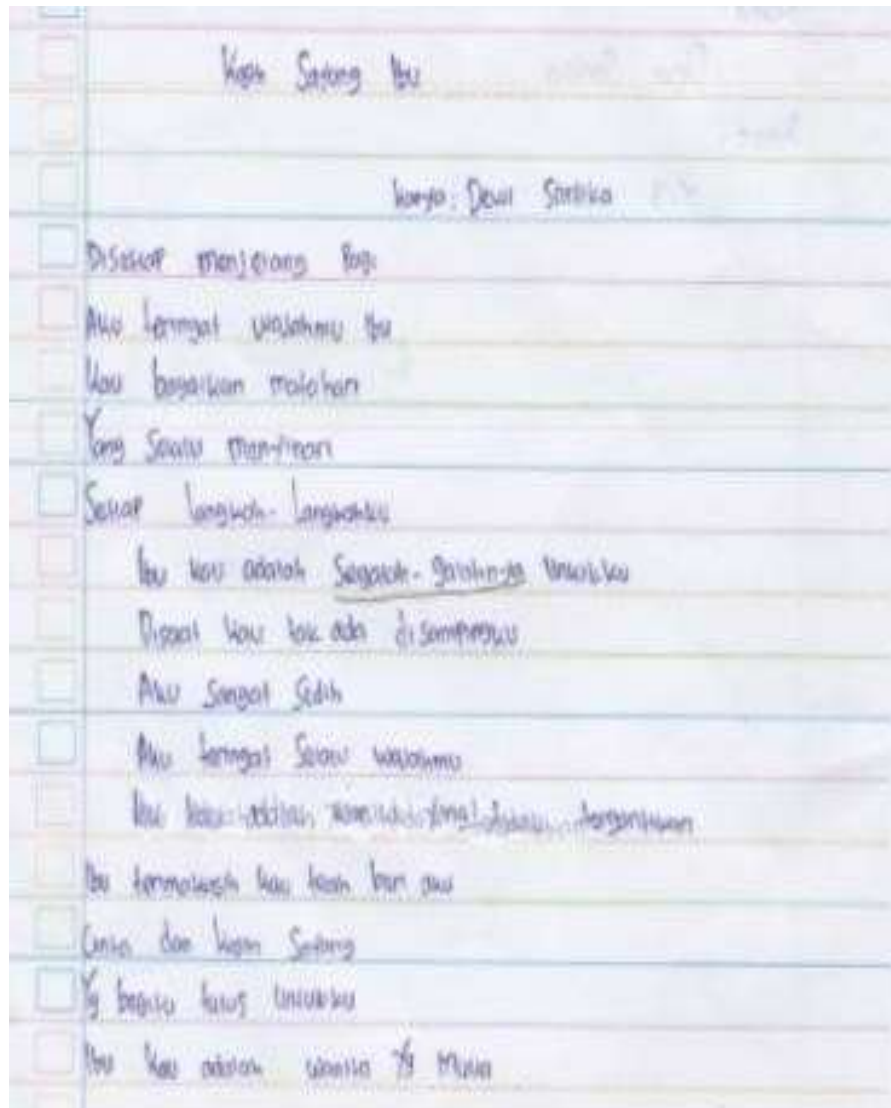 Kasih Sayang Ibu
karya: Dewi Sartika
Disetiap menjelang Pagi
Aku teringat wajahmu Ibu
Kau bagaikan matahari
Yang Selalu menyinari
Setiap langkah-langkahku
Ibu kau adalah Segalah-galahnya Untukku
Disaat kau tak ada disampingku
Aku Sangat Sedih
Aku teringat Selalu wajahmu
Ibu kau adalah yang tergantikan
Ibu terimakasih kau telah beri aku
Cinta dan kasih Sayang
Yg begitu tulus Untukku
Ibu Kau adalah wanita Yg Mulia